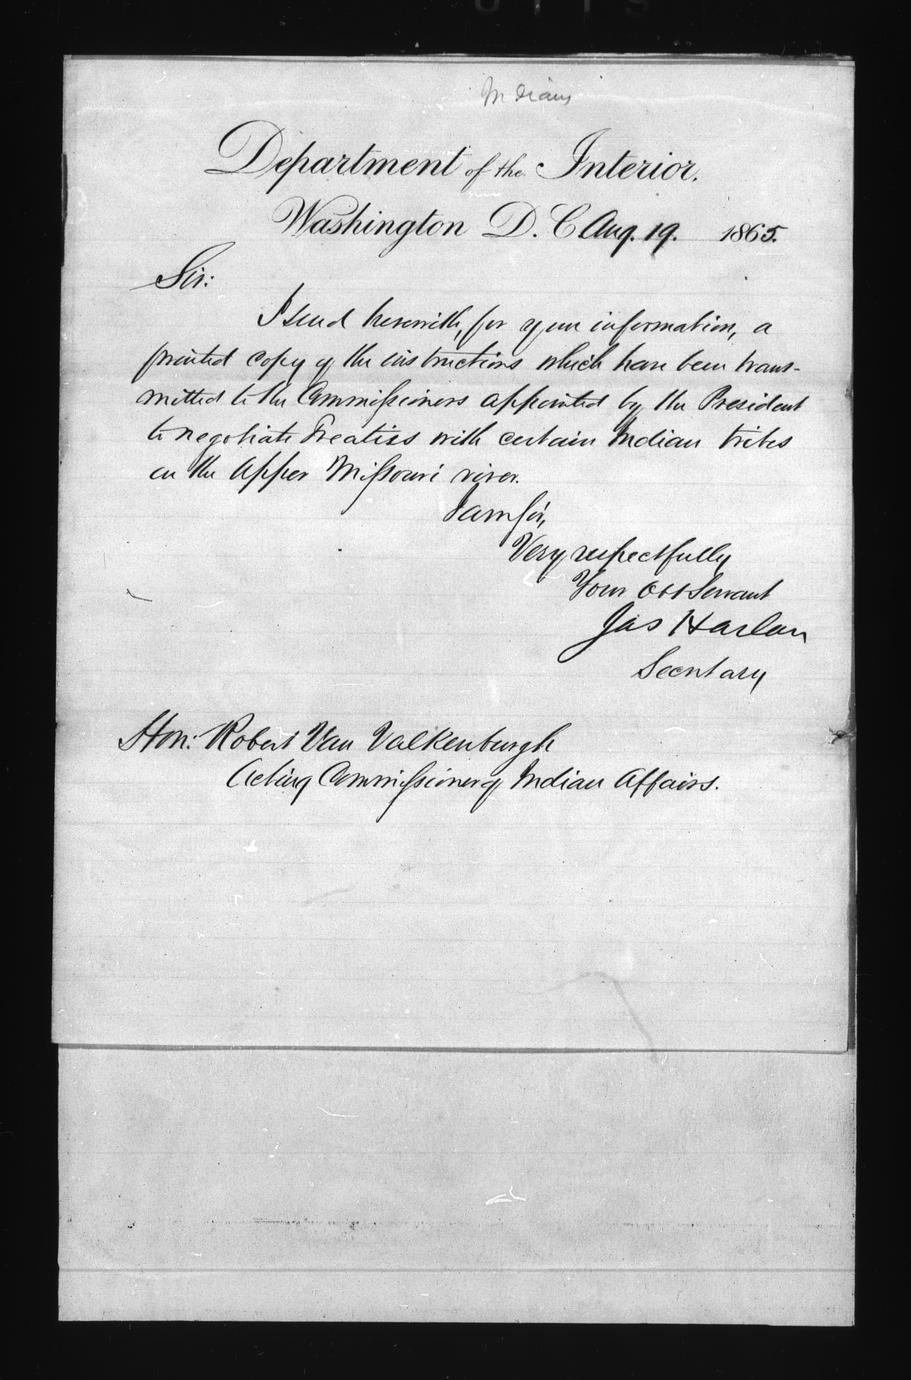 Indians
Department of the Interior.
Washington D. C. Aug. 19. 1865.
Sir:
I send herewith, for your information, a
printed copy of the instructions which have been trans-
mitted to the Commissioners appointed by the President
to negotiate Treaties with certain Indian tribes
on the Upper Missouri river.
I am sir,
Very respectfully
Your Obt Servant
Jas Harlan
Secretary
Hon: Robert Van Valkenburgh
Acting Commissioner of Indian Affairs.